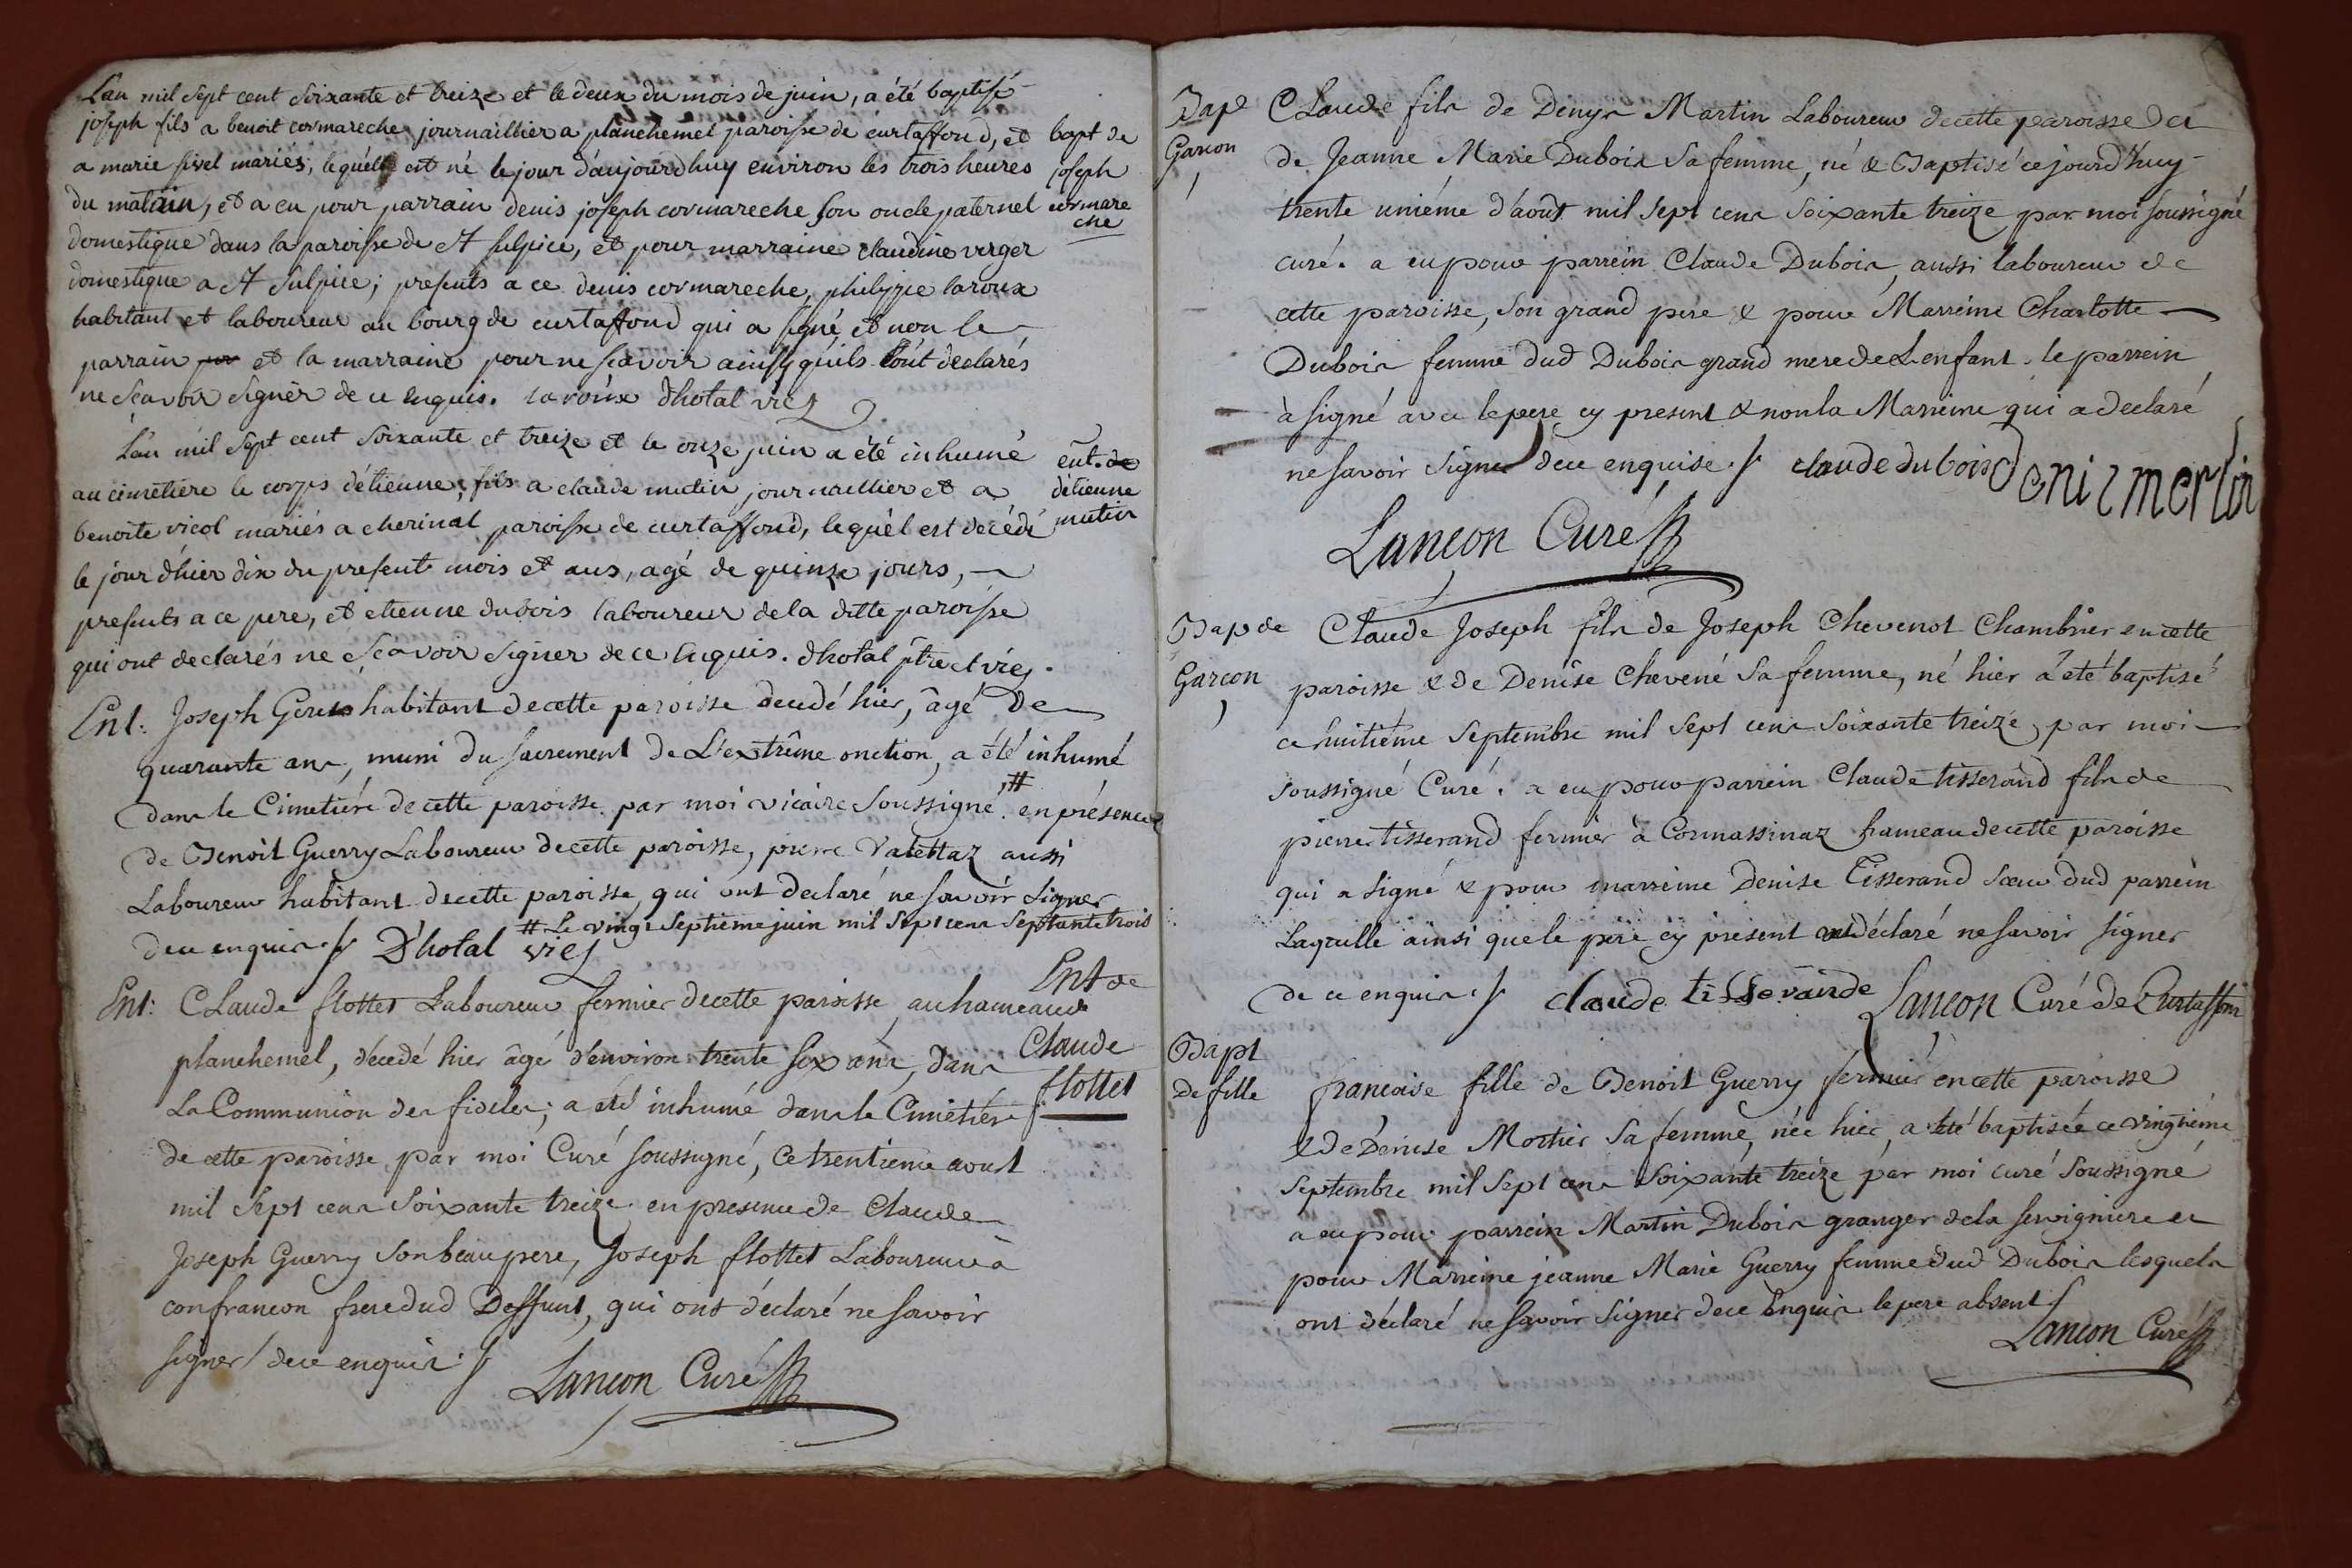 L'an mil sept cent soixante et treize et le deux du mois de juin, a été baptisé
joseph fils a benoit cormareche journaillier a planchemel paroisse de curtaffond, et
a marie sivel mariés, lequell est né le jour d'aujourdhuy environ les trois heures
du matain, et a eu pour parrain denis joseph cormareche son oncle paternel
domestique dans la paroisse de st sulpice, et pour marraine claudine verger
domestique a st sulpice; presents a ce denis cormareche, philippe laroux
habitant et laboureur au bourg de curtaffond qui a signé et non le
parrain et la marraine pour ne scavoir ainsy qu'ils l'out declarés
ne scavoir signer de ce enquis. laroux dhotal vic
bapt de
joseph
cormare
che
L'an mil sept cent soixante et treize et le onze juin a été inhumé
au cimetiere le corps d'étienne, fils a claude mutin journaillier et a
benoite vicol mariés a cherinal paroisse de curtaffond, lequel est decédé
le jour d'hier dix du present mois et ans, agé de quinze jours,
presents a ce pere, et etienne dubois laboureur de la ditte paroisse
qui ont declarés ne scavoir signer de ce enquis. dhotal ptre et vic.
ent. de
d'etienne
mutin
Ent: Joseph habitant de cette paroisse decedé hier, âgé de
quarante ans, muni du sacrement de L'extrême onction, a été inhumé
dans le Cimetiére de cette paroisse par moi vicaire soussigné, # en présence
de Benoit Guerry Laboureur de cette paroisse, pierre Valettaz aussi
Laboureur habitant de cette paroisse, qui ont declaré ne savoir signer
# Le vingt septieme juin mil sept cens septante trois
de ce enquis ./. D'hotal vic
Ent: CLaude flottet Laboureur fermier de cette paroisse au hameau de
planchemel, décedé hier âgé d'environ trente six ans, dans
La Communion des fideles; a été inhumé dans le Cimetiére
de cette paroisse par moi Curé soussigné, ce trentieme aoust
mil sept cens soixante treize en presence de Claude
Joseph Guerry son beau pere, Joseph flottet Laboureur à
confrancon frere dud Deffunt, qui ont déclaré ne savoir
signer de ce enquis ./. Lançon Curé
Ent de
Claude
flottet
Bap de
Garcon
CLaude fils de Denys Martin Laboureur de cette paroisse et
de Jeanne Marie Dubois sa femme, né & Baptisé ce jourd'huy
trente uniéme d'aout mil sept cens soixante treize par moi soussigné
curé. a eu pour parrein Claude Dubois, aussi laboureur de
cette paroisse, son grand pére & pour Marreine Charlotte
Dubois femme dud Dubois grand mere de L'enfant. le parrein
à signé avec le pere cy present & non la Marreine qui a declaré
ne savoir signer de ce enquise ./. claude dubois Denis merlin
Lançon Curé
Bap de
Garcon
Claude Joseph fils de Joseph Chevenot Chambrier en cette
paroisse & de Denise Chevené sa femme, né hier a été baptisé
ce huitiéme septembre mil sept cens soixante treize, par moi
soussigné Curé. a eu pour parrein Claude tisserand fils de
pierre tisserand fermier à Cormassinaz hameau de cette paroisse
qui a signé & pour marreine Denise Tisserand soeur dud parrein
Laquelle ainsi que le pere cy present ont déclaré ne savoir signer
de ce enquis ./. claude tisserande Lançon Curé de Curtaffon
Bapt
De fille
francoise fille de Benoit Guerry fermier en cette paroisse
& de Denise Mortier sa femme, née hier, a été baptisée ce vingtiéme
septembre mil sept cens soixante treize par moi curé soussigné
a eu pour parrein Martin Dubois granger de la et
pour Marreine jeanne Marie Guerry femme dud Dubois lesquels
ont déclaré ne savoir signer de ce enquis le pere absent ./.
Lançon Curé